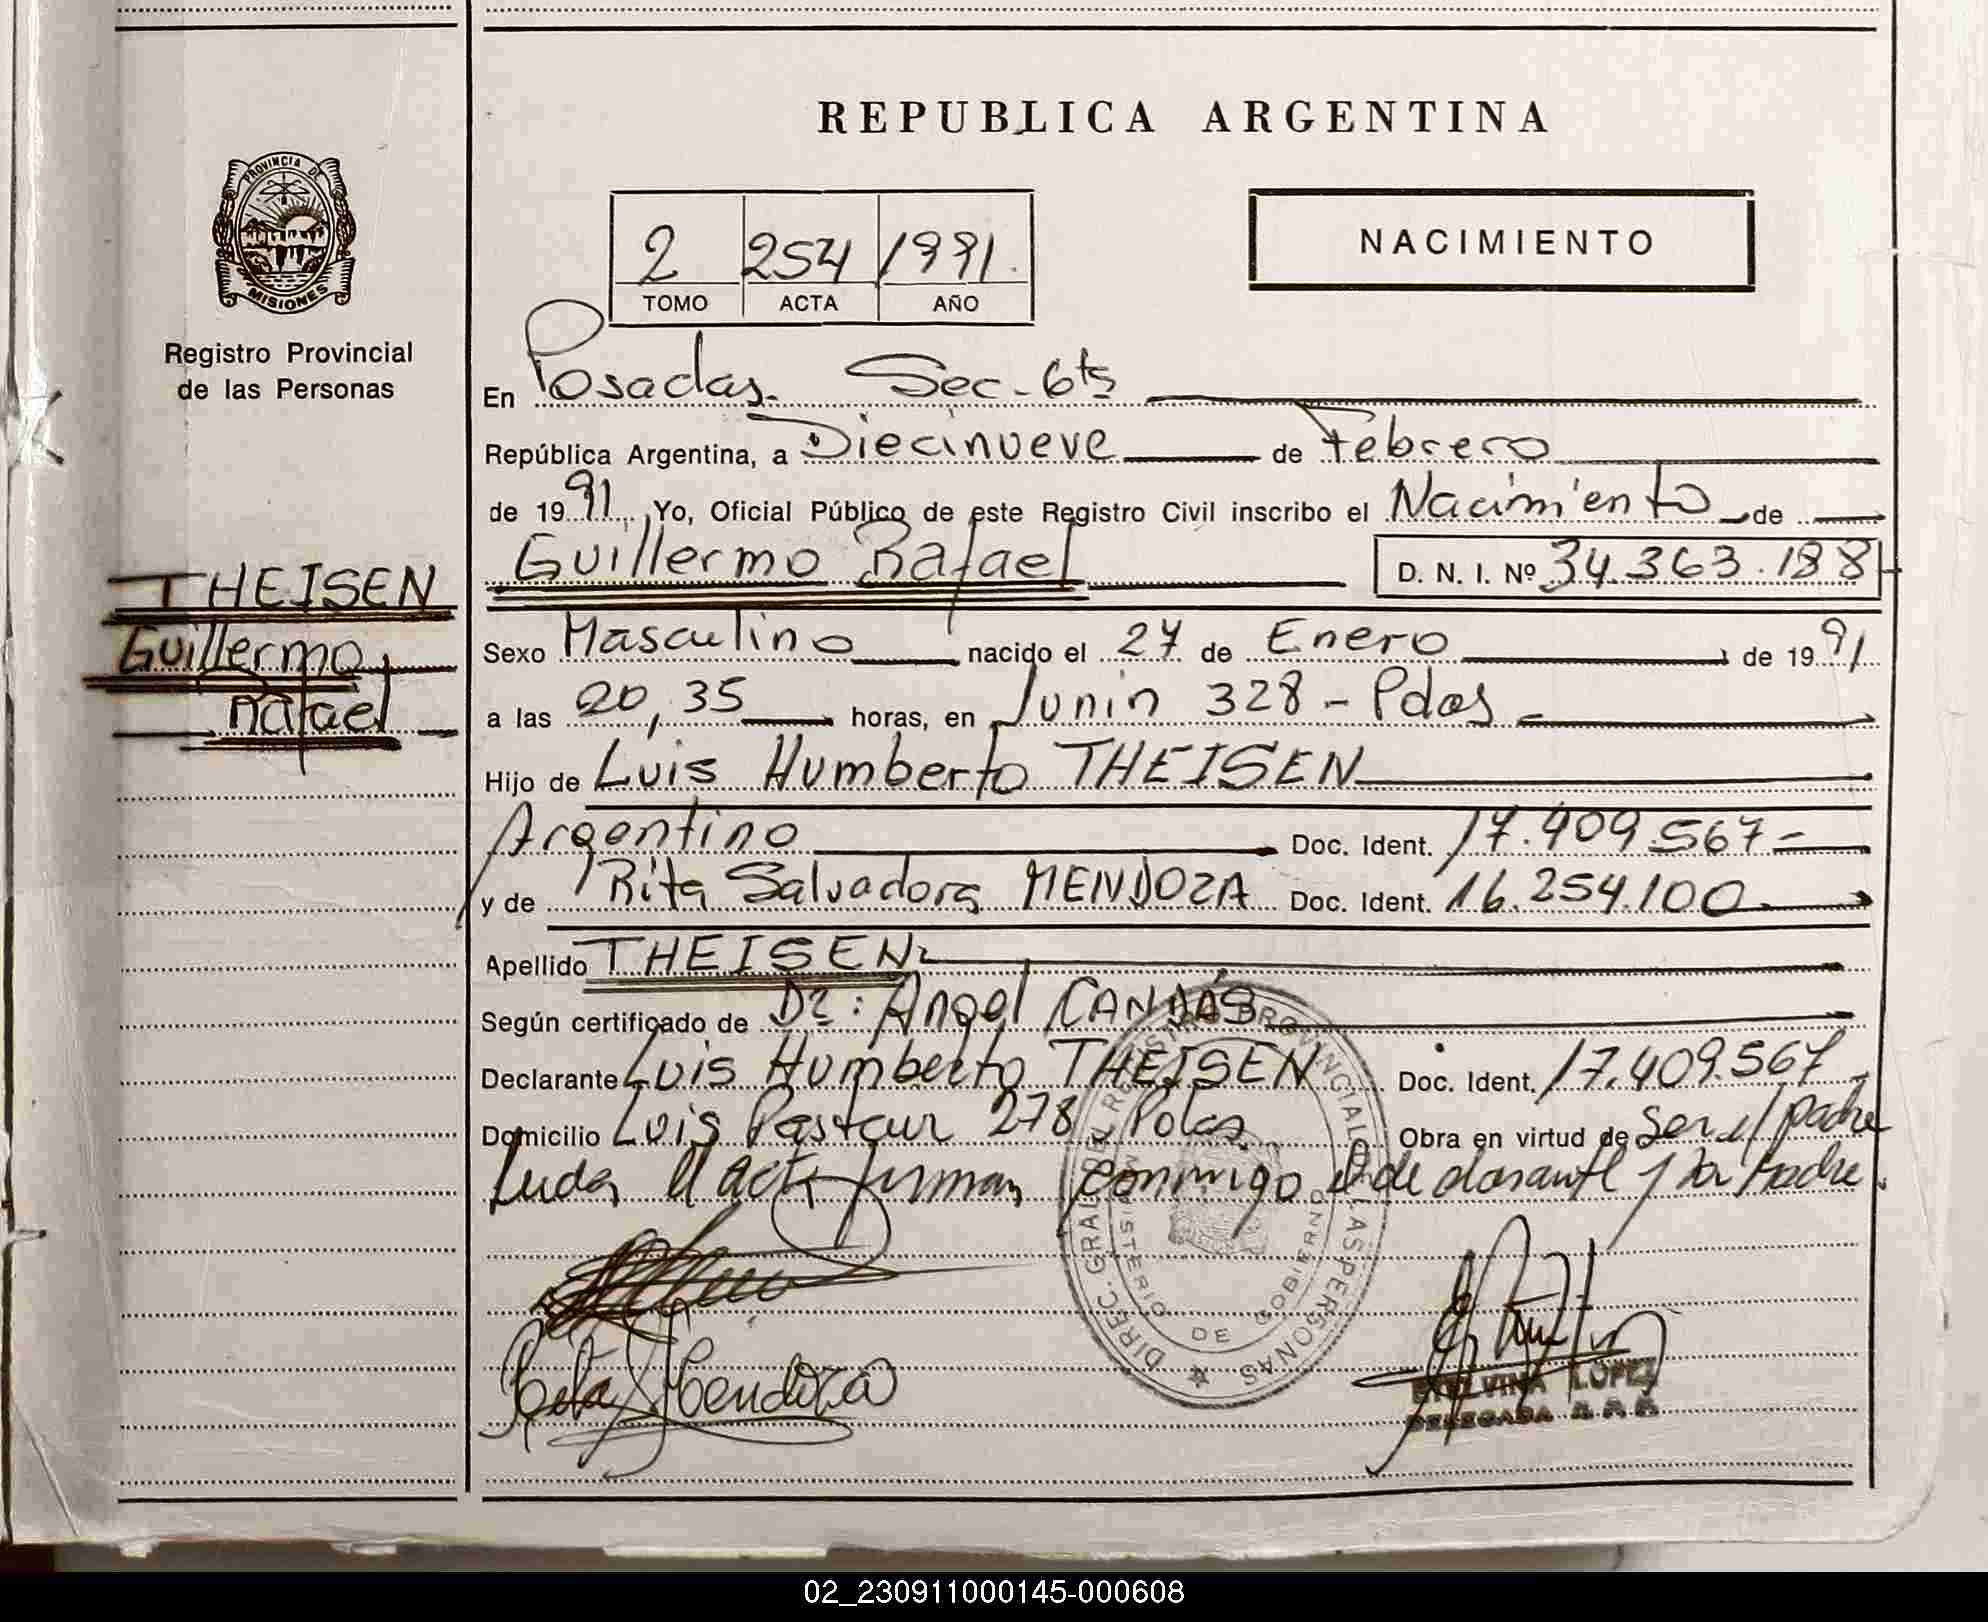 REPUBLICA ARGENTINA
PROVINCIA DE
MISIONES
Registro Provincial
de las Personas
2 254 1991.
TOMO ACTA AÑO
NACIMIENTO
En Posadas. Sec. 6ta
República Argentina, a Diecinueve de Febrero
de 1991. Yo, Oficial Público de este Registro Civil inscribo el Nacimiento de
Guillermo Rafael D. N. I. Nº 34.363.188
THEISEN
Guillermo
Rafael
Sexo Masculino nacido el 27 de Enero de 1991
a las 20,35 horas, en Junin 328 - Pdas
Hijo de Luis Humberto THEISEN
Argentino Doc. Ident. 17.409.567-
y de Rita Salvadora MENDOZA Doc. Ident. 16.254.100
Apellido THEISEN
Según certificado de Dr: Angel CANDÁS
Declarante Luis Humberto THEISEN Doc. Ident. 17.409.567
Domicilio Luis Pasteur 278, Pdas. Obra en virtud de ser el padre
Leida el acta firman conmigo el declarante y la Madre.
DIREC. GRAL. DEL REGISTRO PROVINCIAL DE LAS PERSONAS
MINISTERIO DE GOBIERNO
Rita S Mendoza
LOPEZ
DELEGADA
02_230911000145-000608